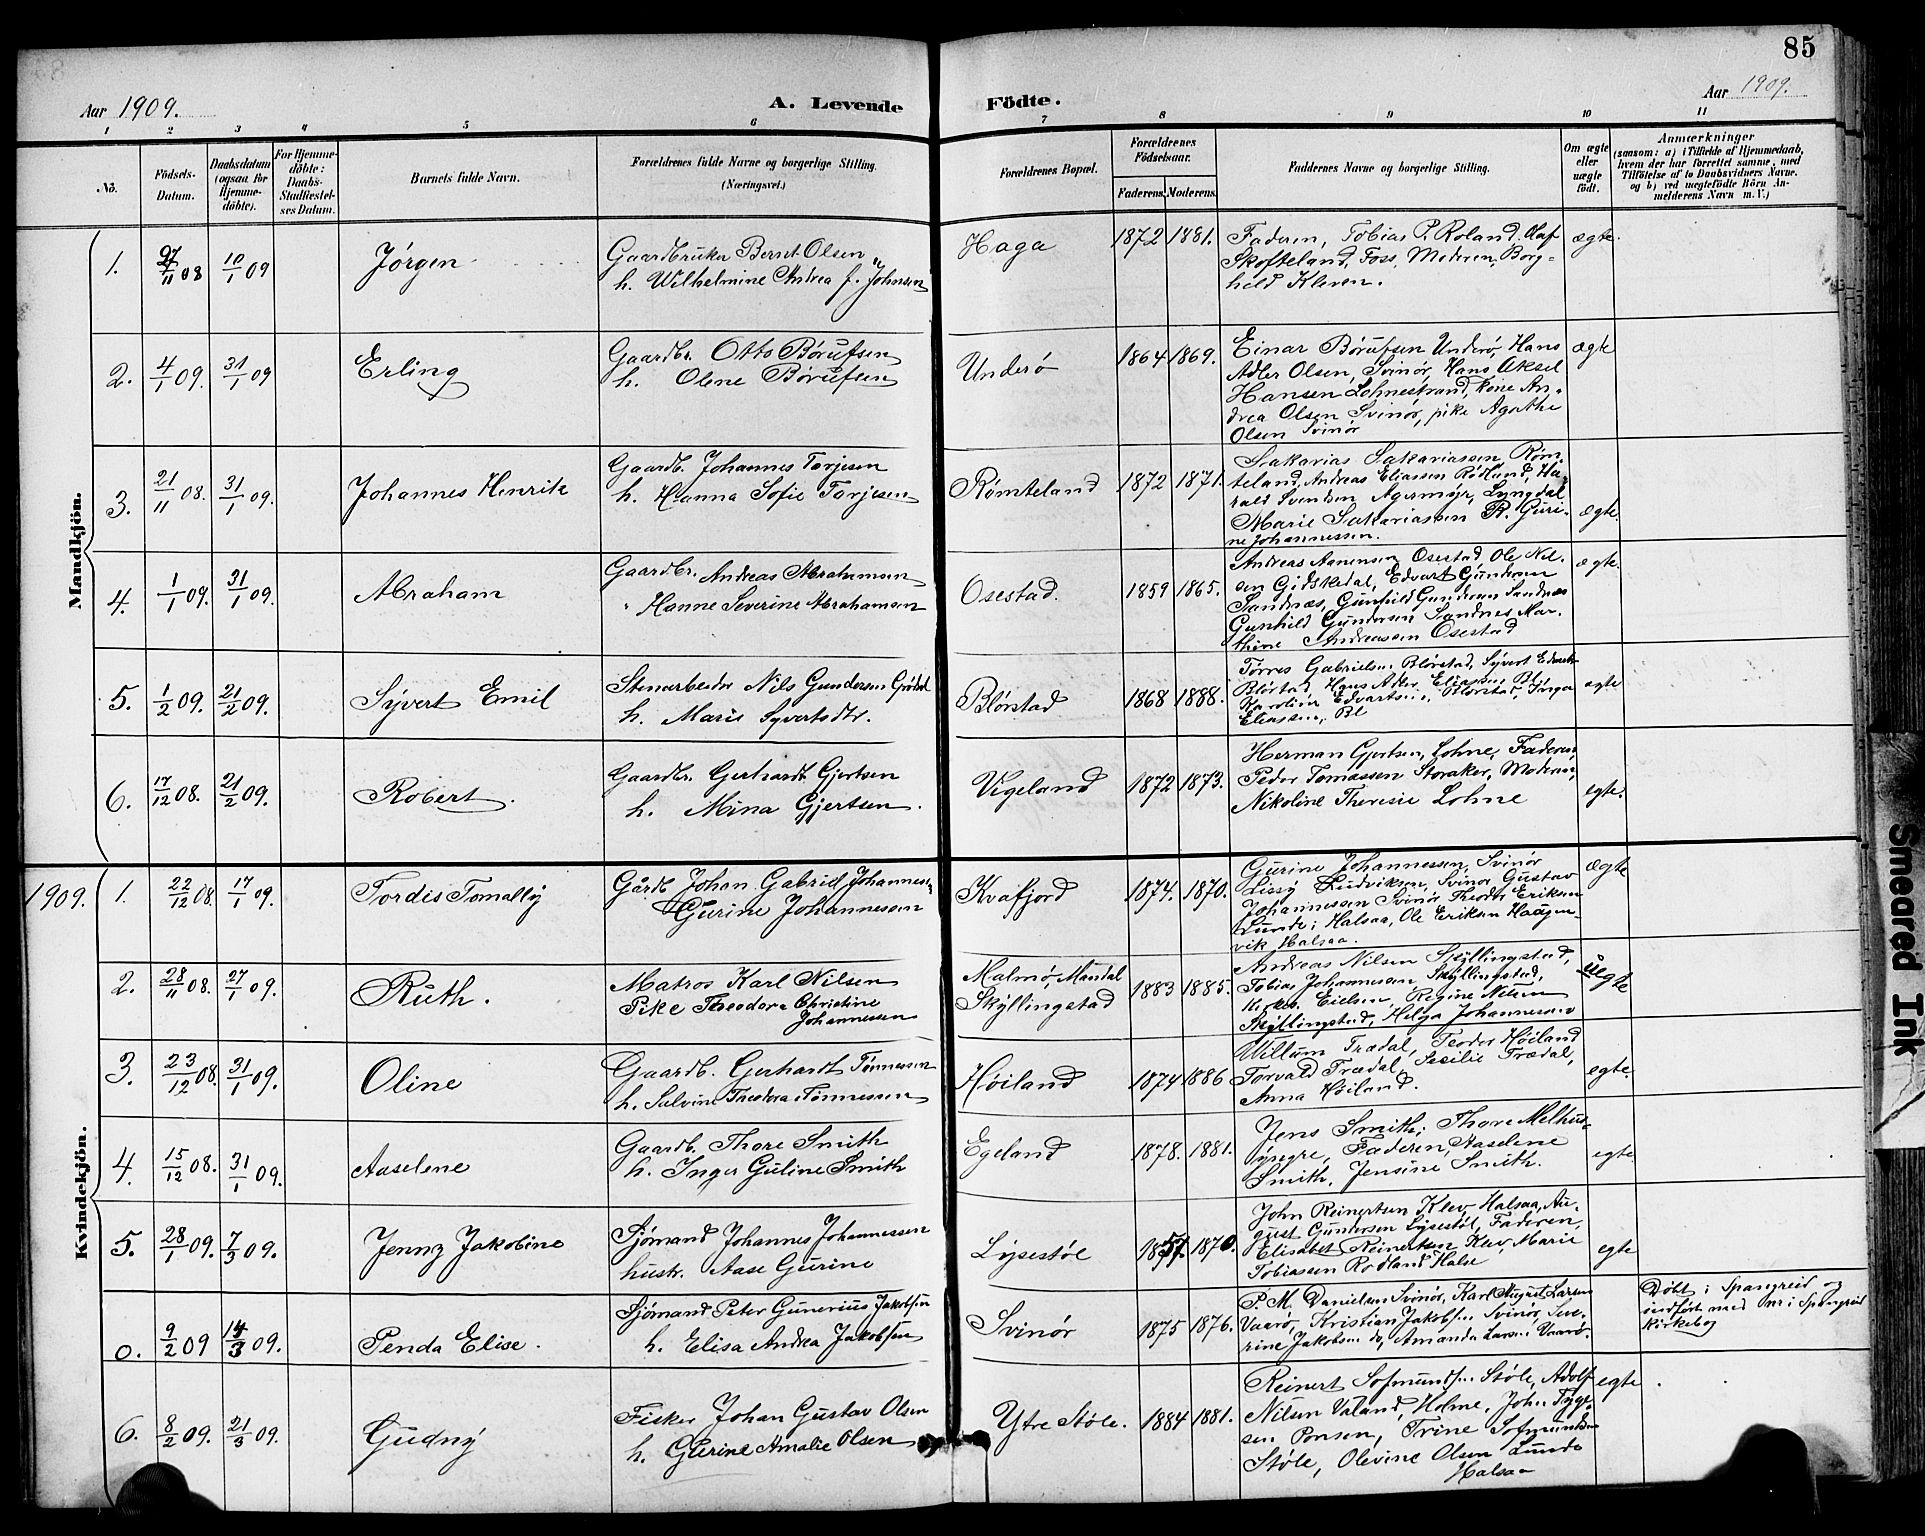 85
Aar 1909.
A. Levende
Födte.
Aar 1909.
1 2 3 4 5 6 7 8 9 10 11
No.
Födsels-
Datum.
Daabsdatum
(ogsaa for
Hjemme-
döbte).
For Hjemme-
döbte:
Daabs-
Stadfæstel-
ses Datum.
Barnets fulde Navn.
Forældrenes fulde Navne og borgerlige Stilling.
(Næringsvei.)
Forældrenes Bopæl.
Forældrenes
Födselsaar.
Faderens. Moderens.
Faddernes Navne og borgerlige Stilling.
Om ægte
eller
uægte
født.
Anmærkninger
(saasom: a) i Tilfælde af Hjemmedaab,
hvem der har forrettet samme, med
Tilföielse af to Daabsvidners Navne.
og b) ved uægtefödte Börn An-
melderens Navn m. V.)
Mandkjön.
1. 27/11 08 10/1 09 Jørgen
Gaardbruker Bernt Olsen
h. Wilhelmine Andrea f. Johnsen
Haga 1872 1881.
Faderen, Tobias P. Roland. Olaf
Skofteland, Foss, Moderen, Borg-
hild Kleven.
ægte.
2. 4/1 09. 31/1 09 Erling
Gaardbr. Otto Børufsen
h. Olene Børufsen
Underø 1864 1869.
Einar Børufsen Underø, Hans
Adler Olsen, Svinør, Hans Aksel
Hansen Lohnestrand, kone An-
drea Olsen Svinør, pike Agathe
Olsen Svinør
ægte
3. 21/11 08. 31/1 09. Johannes Henrik
Gaardb. Johannes Torjesen
h. Hanna Sofie Torjesen
Rømteland 1872 1871.
Sakarias Sakariassen Røm-
teland, Andreas Eliassen Rødlund, Ha-
rald Svendsen Agersmyr, Lyngdal
Marie Sakariassen R. Guri-
ne Johannessen.
ægte.
4. 1/1 09. 31/1 09. Abraham
Gaardbr. Andreas Abrahamsen
" Hanne Severine Abrahamsen
Osestad. 1859 1865.
Andreas Aanensen Osestad Ole Nil-
sen Gidskedal, Edvart Gundersen
Sandnæs, Gunhild Gundersen Sandnæs
Gunhild Gundersen Sandnes Mar-
thine Andreassen Osestad
ægte.
5. 1/2 09. 21/2 09. Syvert Emil
Stenarbeider Nils Gundersen
h. Marie Syvertsdtr.
Blørstad 1868 1888.
Tørres Gabrielsen Blørstad, Syvert Edvarts
Blørstad, Hans Adler Eliassen Bl
Karoline Edvartsen, Blørstad, Inga
Eliassen, Bl
egte
6. 17/12 08. 21/2 09. Robert.
Gaardbr. Gerhardt Gjertsen
h. Mina Gjertsen.
Vigeland 1872 1873.
Herman Gjertsen, Lohne, Faderen
Peder Tomassen Storaker, Moderen,
Nikoline Theresie Lohne
egte.
Kvindekjön.
1909. 1. 22/12 08. 17/1 09. Tordis Tomally
Gårdb. Johan Gabriel Johannessen
Gurine Johannessen
Kvafjord 1874. 1870.
Gurine Johannessen, Svinør
Lissy Ludviksen, Svinør Gustav
Johannessen Svinør Theodor Eriksen
Lunde i Halsaa, Ole Eriksen Haagen-
vik Halsaa.
ægte
2. 28/11 08. 27/1 09. Ruth.
Matros Karl Nilsen
Pike Theodora Christine
Johannessen
Malmø, Mandal
Skyllingstad 1883 1885.
Andreas Nilsen Skyllingstad,
Tobias Johannessen Skyllingstad,
Kirkes. Eielsen, Regine Nilsen
Skyllingstad, Helga Johannessen
uegte
3. 23/12 08. 31/1 09. Oline
Gaardb. Gerhardt Tønnessen
h. Salvine Theodora Tønnessen
Høiland 1874 1886
Willum Trædal, Teodor Høiland
Torvald Trædal, Secilie Trædal,
Anna Høiland.
egte.
4. 15/12 08. 31/1 09. Aaselene
Gaardb. Thore Smith
h. Inger Guline Smith
Egeland 1878. 1881.
Jens Smith; Thore Melhus-
Faderen, Aaselene
Smith, Jensine Smith.
egte
5. 28/1 09. 7/3 09. Jenny Jakobine
Sjømand Johannes Johannessen
hustr. Aase Gurine
Lysestøl 1857. 1870.
John Reinertsen Klev Halsaa, Au-
gust Gundersen Lysestøl, Faderen,
Elisabet Reinertsen Klev, Marie
Tobiassen Rødland Halse
egte
0. 9/2 09 14/3 09. Penda Elise.
Sjømand Peter Gunerius Jakobsen
h. Elisa Andrea Jakobsen
Svinør 1875 1876.
P. M. Danielsen Svinør, Karl August Larsen
Vaarø, Kristian Jakobsen Svinør, Seve-
rine Jakobsen do, Amanda Larsen Vaarø.
Døbt i Spangreid og
indført med nr i Spangreid
kirkebog
6. 8/2 09. 21/3 09. Gudny
Fisker Johan Gustav Olsen
h. Gurine Amalie Olsen
Ytre Støle. 1884 1881.
Reinert Sofmundsen Støle, Adolf
Nilsen Valand, Holme, John Tygt-
sen Ponsen, Trine Sofmundsen
Støle, Olevine Olsen Lunde
Halsaa
egte
Smeared Ink